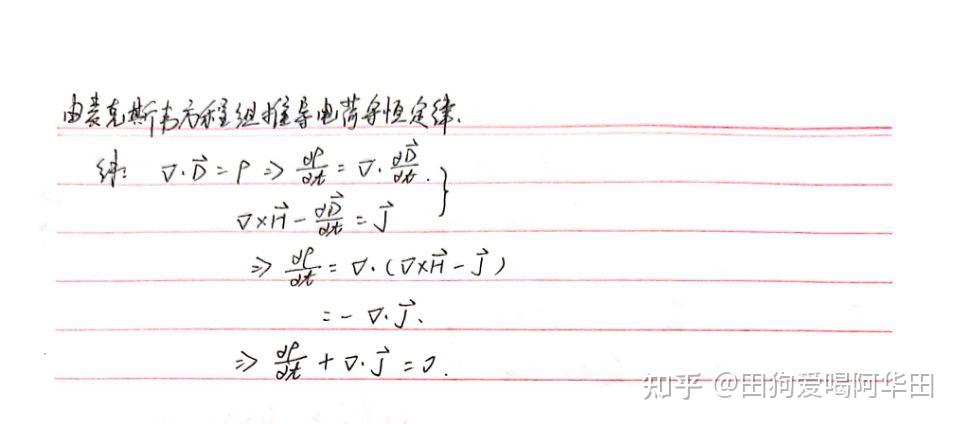 由麦克斯韦方程组推导电荷守恒定律.
解: ∇·D⃗ = ρ ⇒ dρ/dt = ∇·dD⃗/dt. }
∇×H⃗ - dD⃗/dt = J⃗
⇒ dρ/dt = ∇·(∇×H⃗ - J⃗)
= - ∇·J⃗.
⇒ dρ/dt + ∇·J⃗ = 0.
知乎 @田狗爱喝阿华田